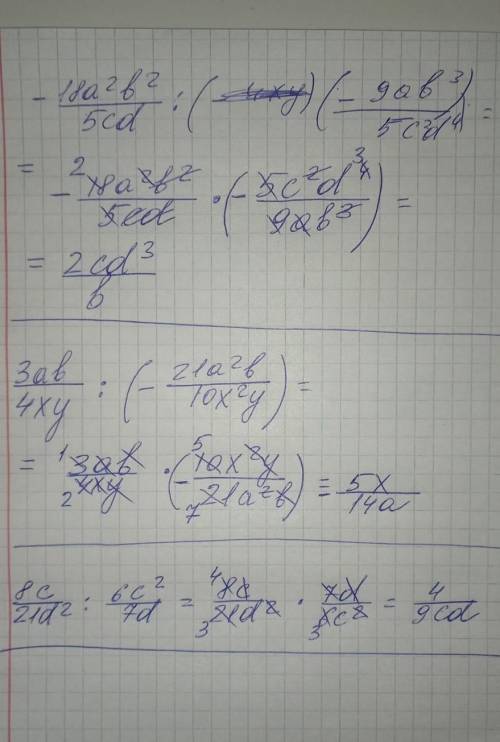 - 18a²b²/5cd : (- 9ab³/5c²d⁴) =
= - 18a²b²/5cd · (- 5c²d⁴/9ab³) =
= 2cd³/b
3ab/4xy : (- 21a²b/10x²y) =
= 3ab/4xy · (- 10x²y/21a²b) = 5x/14a
8c/21d² : 6c²/7d = 8c/21d² · 7d/6c² = 4/9cd